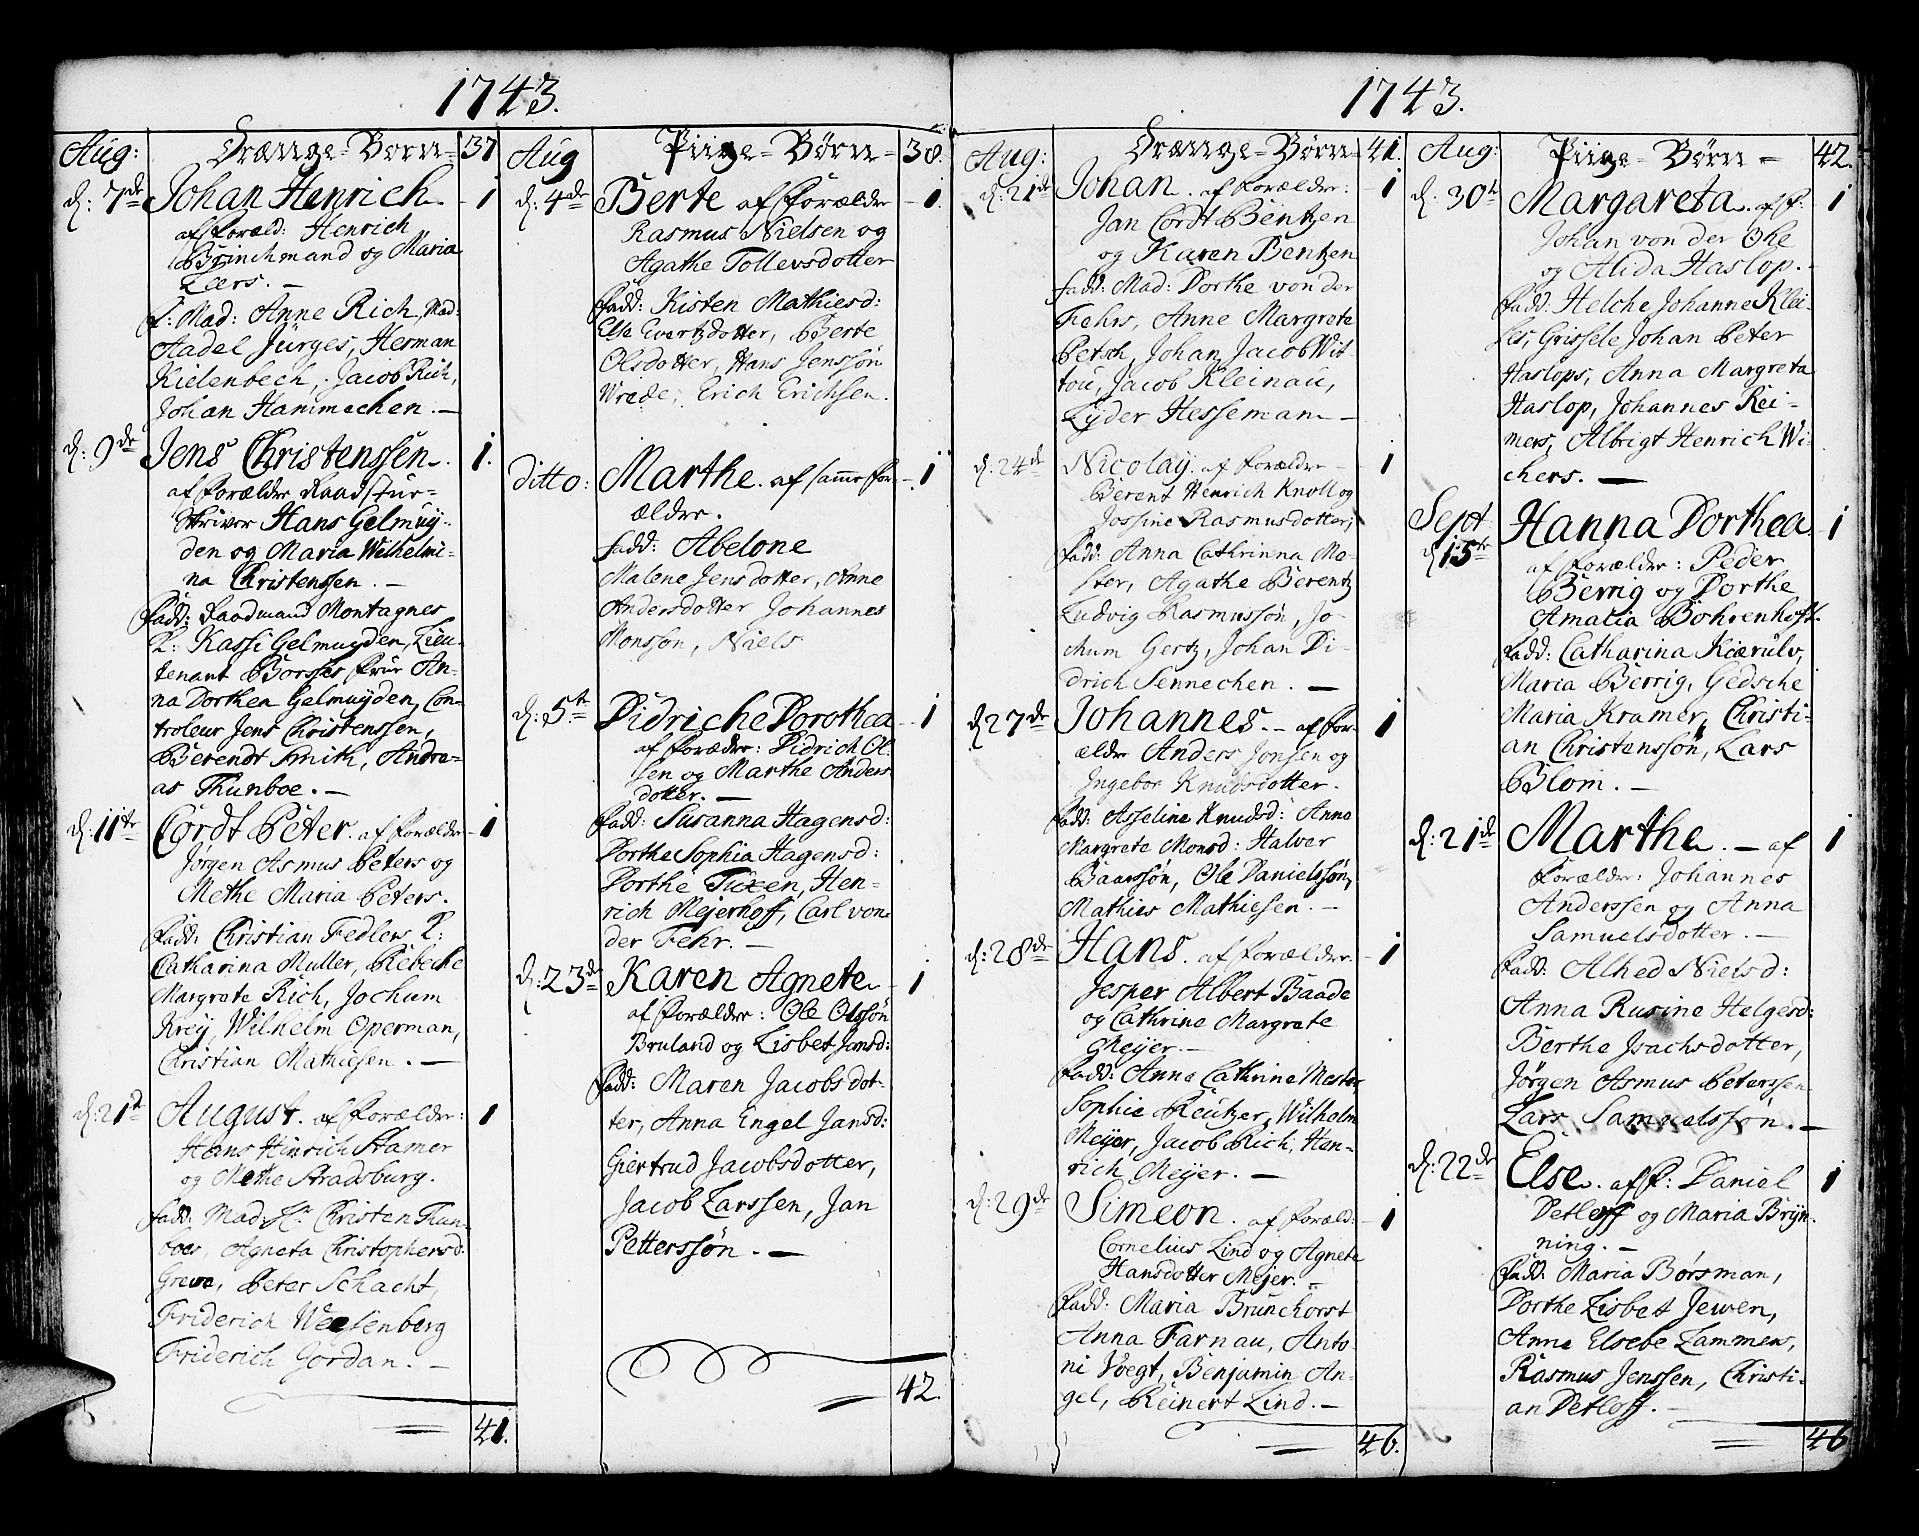 1743.
Aug: Drænge-Børn- 37
d: 7de Johan Henrich - 1
af foræld: Henrich
Brinchmand og Maria
Lærs. -
f: Mad: Anne Rich, Mad:
Aadel Jürges, Herman
Kielenbech, Jacob Rich,
Johan Hammechen. -
d: 9de Jens Christenssen. 1.
af forældre Raadstur-
skriver Hans Gelmuy-
den og Maria Wilhelmi-
na Christenssen. -
fadd: Raadmand Montagnes
K: Kassi Gelmuyden, Lieu-
tenant Borsses frue An-
na Dorthea Gelmuyden, Con-
troleur Jens Christenssen,
Berendt Smith, Andre-
as Thunboe. -
d: 11te Cordt Peter. af forældre - 1
Jørgen Asmus Peters og
Methe Maria Peters.
fadd: Christian Fedlers K:
Catharina Muller, Rebecke
Margrete Rich, Jochum
Krey, Wilhelm Operman,
Christian Mathiesen. -
d: 21de August. af forældre: 1
Hans Hinrich Stamer
og Methe Stradsburg.
fadd: Mad. Christen Thun-
boes, Agneta Christophersd:
Greve, Peter Schacht,
Friderich Weesenberg
Friderich Jordan. -
41.
Aug Piige-Børn- 38.
d: 4de Berte af forældre - 1.
Rasmus Nielsen og
Agathe Tollevsdotter
fadd: Kisten Mathiesd:
Else Evertzdotter, Berte
Olsdotter, Hans Jenssøn
Wrede, Erich Erichsen.
ditto: Marthe. af samme for- 1
ældre.
fadd: Abelone
Malene Jensdotter, Anne
Andersdotter Johannes
Monssøn, Niels
d: 5te Didriche Dorothea - 1
af forældre: Didrich Ol
sen og Marthe Anders
dotter. -
fadd: Susanna Hagensd:
Dorthe Sophia Hagensd:
Dorthe Tuxen, Hen-
rich Mejerhoff, Carl von
der Fehr. -
d: 23de Karen Agnete - 1
af forældre: Ole Olssøn
Bruland og Lisbet Jansd:
fadd: Maren Jacobsdot-
ter, Anna Engel Jansd:
Giertrud Jacobsdotter,
Jacob Larssen, Jan
Petterssøn. -
42.
1743.
Aug: Drænge-Børn 41.
d: 21de Johan. af forældre: - 1
Jan Cordt Bentzen
og Karen Bentzen
fadd: Mad: Dorthe von der
Fehrs, Anne Margrete
Petsch, Johan Jacob Wit-
tou, Jacob Kleinau,
Lyder Hesseman -
d: 24de Nicolay. af forældre - 1
Berent Henrich Knoll og
Jossine Rasmusdotter,
fadd: Anna Cathrinna Mo-
ster, Agathe Berentz
Ludvig Rasmussøn, Jo-
chum Gertz, Johan Di-
drich Sennechen. -
d: 27de Johannes. - af for- 1
ældre Anders Jonsen og
Ingebor Knudsdotter.
fadd: Asseline Knudsd: Anne
Margrete Monsd: Halver
Baarssøn, Ole Danielssøn,
Mathies Mathiesen. -
d: 28de Hans. af forældre. - 1
Jesper Albert Baade
og Cathrine Margrete
Meijer. -
fadd: Anne Cathrine Mester
Sophie Reutzer, Wilhelm
Meijer, Jacob Rich, Hen-
rich Meijer. -
d: 29de Simeon. af foræld: - 1
Cornelius Lind og Agnete
Hansdotter Mejer. -
fadd: Maria Brunchorst
Anna Farnau, Anto-
ni Voegt, Benjamin An-
gel, Reinert Lind. -
46.
Aug: Piige-Børn - 42.
d: 30te Margareta. af f: 1
Johan von der Ohe
og Alida Haslop. -
fadd: Helche Johanne Klei-
ses, Grissele Johan Peter
Haslops, Anna Margreta
Haslop, Johannes Rei-
mers, Albrigt Henrich Wi-
chers. -
Sept
d 15te Hanna Dorthea. - 1
af forældre: Peder
Berrig og Dorthe
Amalia Bohrenhoft.
fadd: Catharina Kiærulv,
Maria Berrig, Gedsche
Maria Kramer, Christi-
an Christenssøn, Lars
Blom. -
d: 21de Marthe. - af 1
forældre: Johannes
Anderssen og Anna
Samuelsdotter. -
fadd: Alhed Nielsd:
Anna Rusine Helgesd:
Berthe Isachsdotter,
Jørgen Asmus Peterssen
Lars Samuelssøn. -
d: 22de Else. af f: Daniel 1
Detleff og Maria Bryn-
ning. -
fadd: Maria Børsman,
Dorthe Lisbet Jewen,
Anne Elsebe Lammers,
Rasmus Jenssen, Christi-
an Detloff. -
46